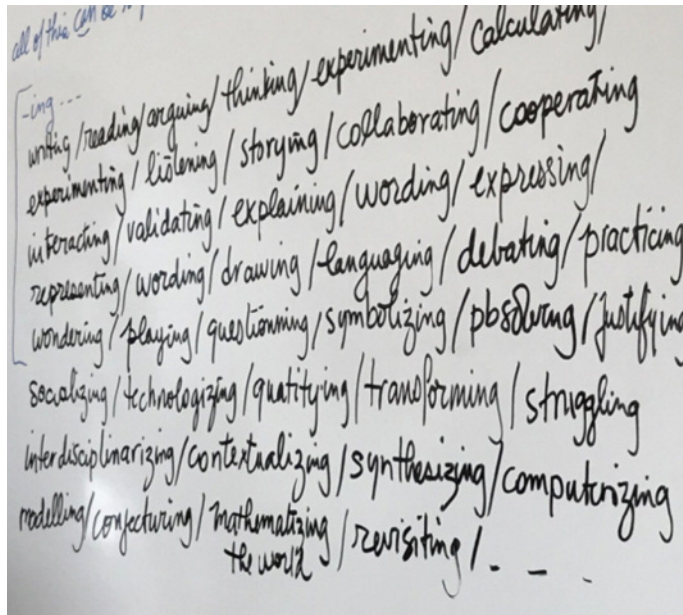 all of this can be
-ing ...
writing/reading/arguing/thinking/experimenting/calculating/
experimenting/listening/storying/collaborating/cooperating
interacting/validating/explaining/wording/expressing/
representing/wording/drawing/languaging/debating/practicing
wondering/playing/questionning/symbolizing/pbsolving/justifying
socializing/technologizing/quatifying/transforming/struggling
interdisciplinarizing/contextualizing/synthesizing/computerizing
modelling/conjecturing/mathematizing/revisiting/. _ _ .
the world